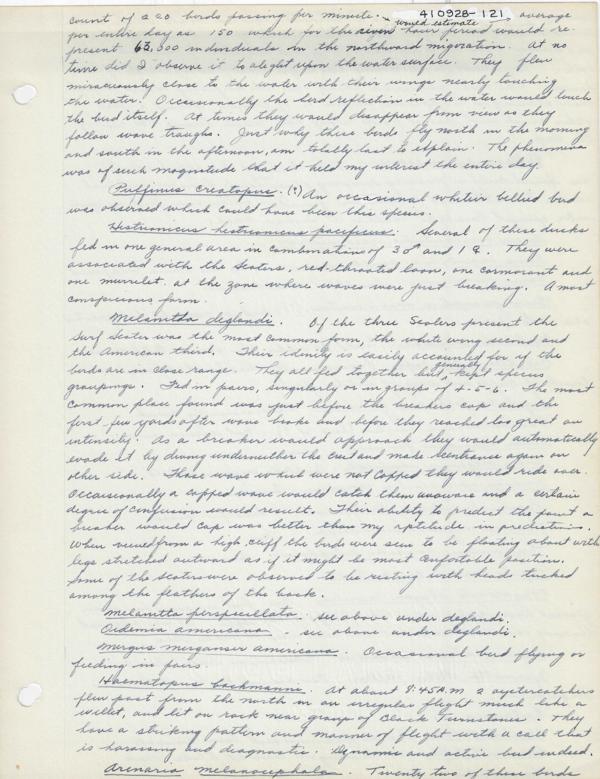 410928-121
count of 220 birds passing per minute. would estimate average
per entire day as 150 which for the seven hour period would re-
present 63,000 individuals in the northward migration. At no
time did I observe it to alight upon the water surface. They flew
miraculously close to the water with their wings nearly touching
the water. Occasionally the bird reflection in the water would touch
the bird itself. At times they would disappear from view as they
follow wave troughs. Just why these birds fly north in the morning
and south in the afternoon, am totally lost to explain. The phenomena
was of such magnitude that it held my interest the entire day.
Puffinus creatopus. (?) An occasional whiteir bellied bird
was observed which could have been this species.
Histrionicus histrionicus pacificus. Several of these ducks
fed in one general area in combination of 3 ♂ and 1 ♀. They were
associated with the scoters, red-throated loon, one cormorant and
one murrelet at the zone where waves were just breaking. A most
conspicious form.
Melanitta deglandi. Of the three Scoters present the
Surf Scoter was the most common form, the white wing second and
the American third. Their idenity is easily accounted for if the
birds are in close range. They all fed together but generally kept species
groupings. Fed in pairs, singularly or in groups of 4-5-6. The most
common place found was just before the breakers cap and the
first few yards after wave broke and before they reached too great an
intensity. As a breaker would approach they would automatically
evade it by diving underneath the curl and make entrance again on
other side. Those waves which were not capped they would ride over.
Occaisionally a capped wave would catch them unaware and a certain
degree of confusion would result. Their ability to predict the point a
breaker would cap was better than my aptitude in predictions.
When viewed from a high cliff the birds were seen to be floating about with
legs stretched outward as if it might be most confortable position.
Some of the scoters were observed to be resting with heads tucked
among the feathers of the back.
Melanitta perspicillata. see above under deglandi.
Oidemia americana - see above under deglandi.
Mergus merganser americana. Occasional bird flying or
feeding in pairs.
Haematopus bachmani. At about 8:45 A.M 2 oystercatchers
flew past from the north in an irregular flight much like a
willet, and lit on rock near group of Black Turnstones. They
have a striking pattern and manner of flight with a call that
is harassing and diagnostic. Dynamic and active bird indeed.
Arenaria melanocephala. Twenty two of these birds